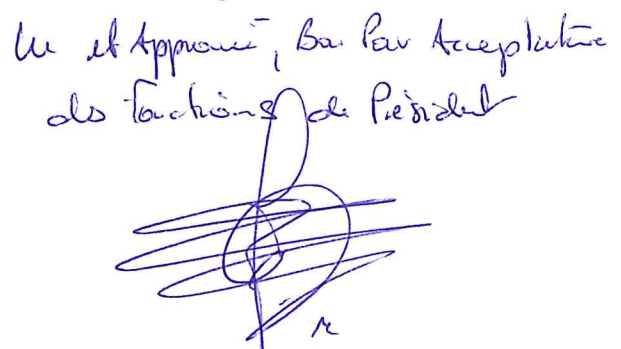 Lu et Approuvé, Bon Pour Acceptation
des Fonctions de Président